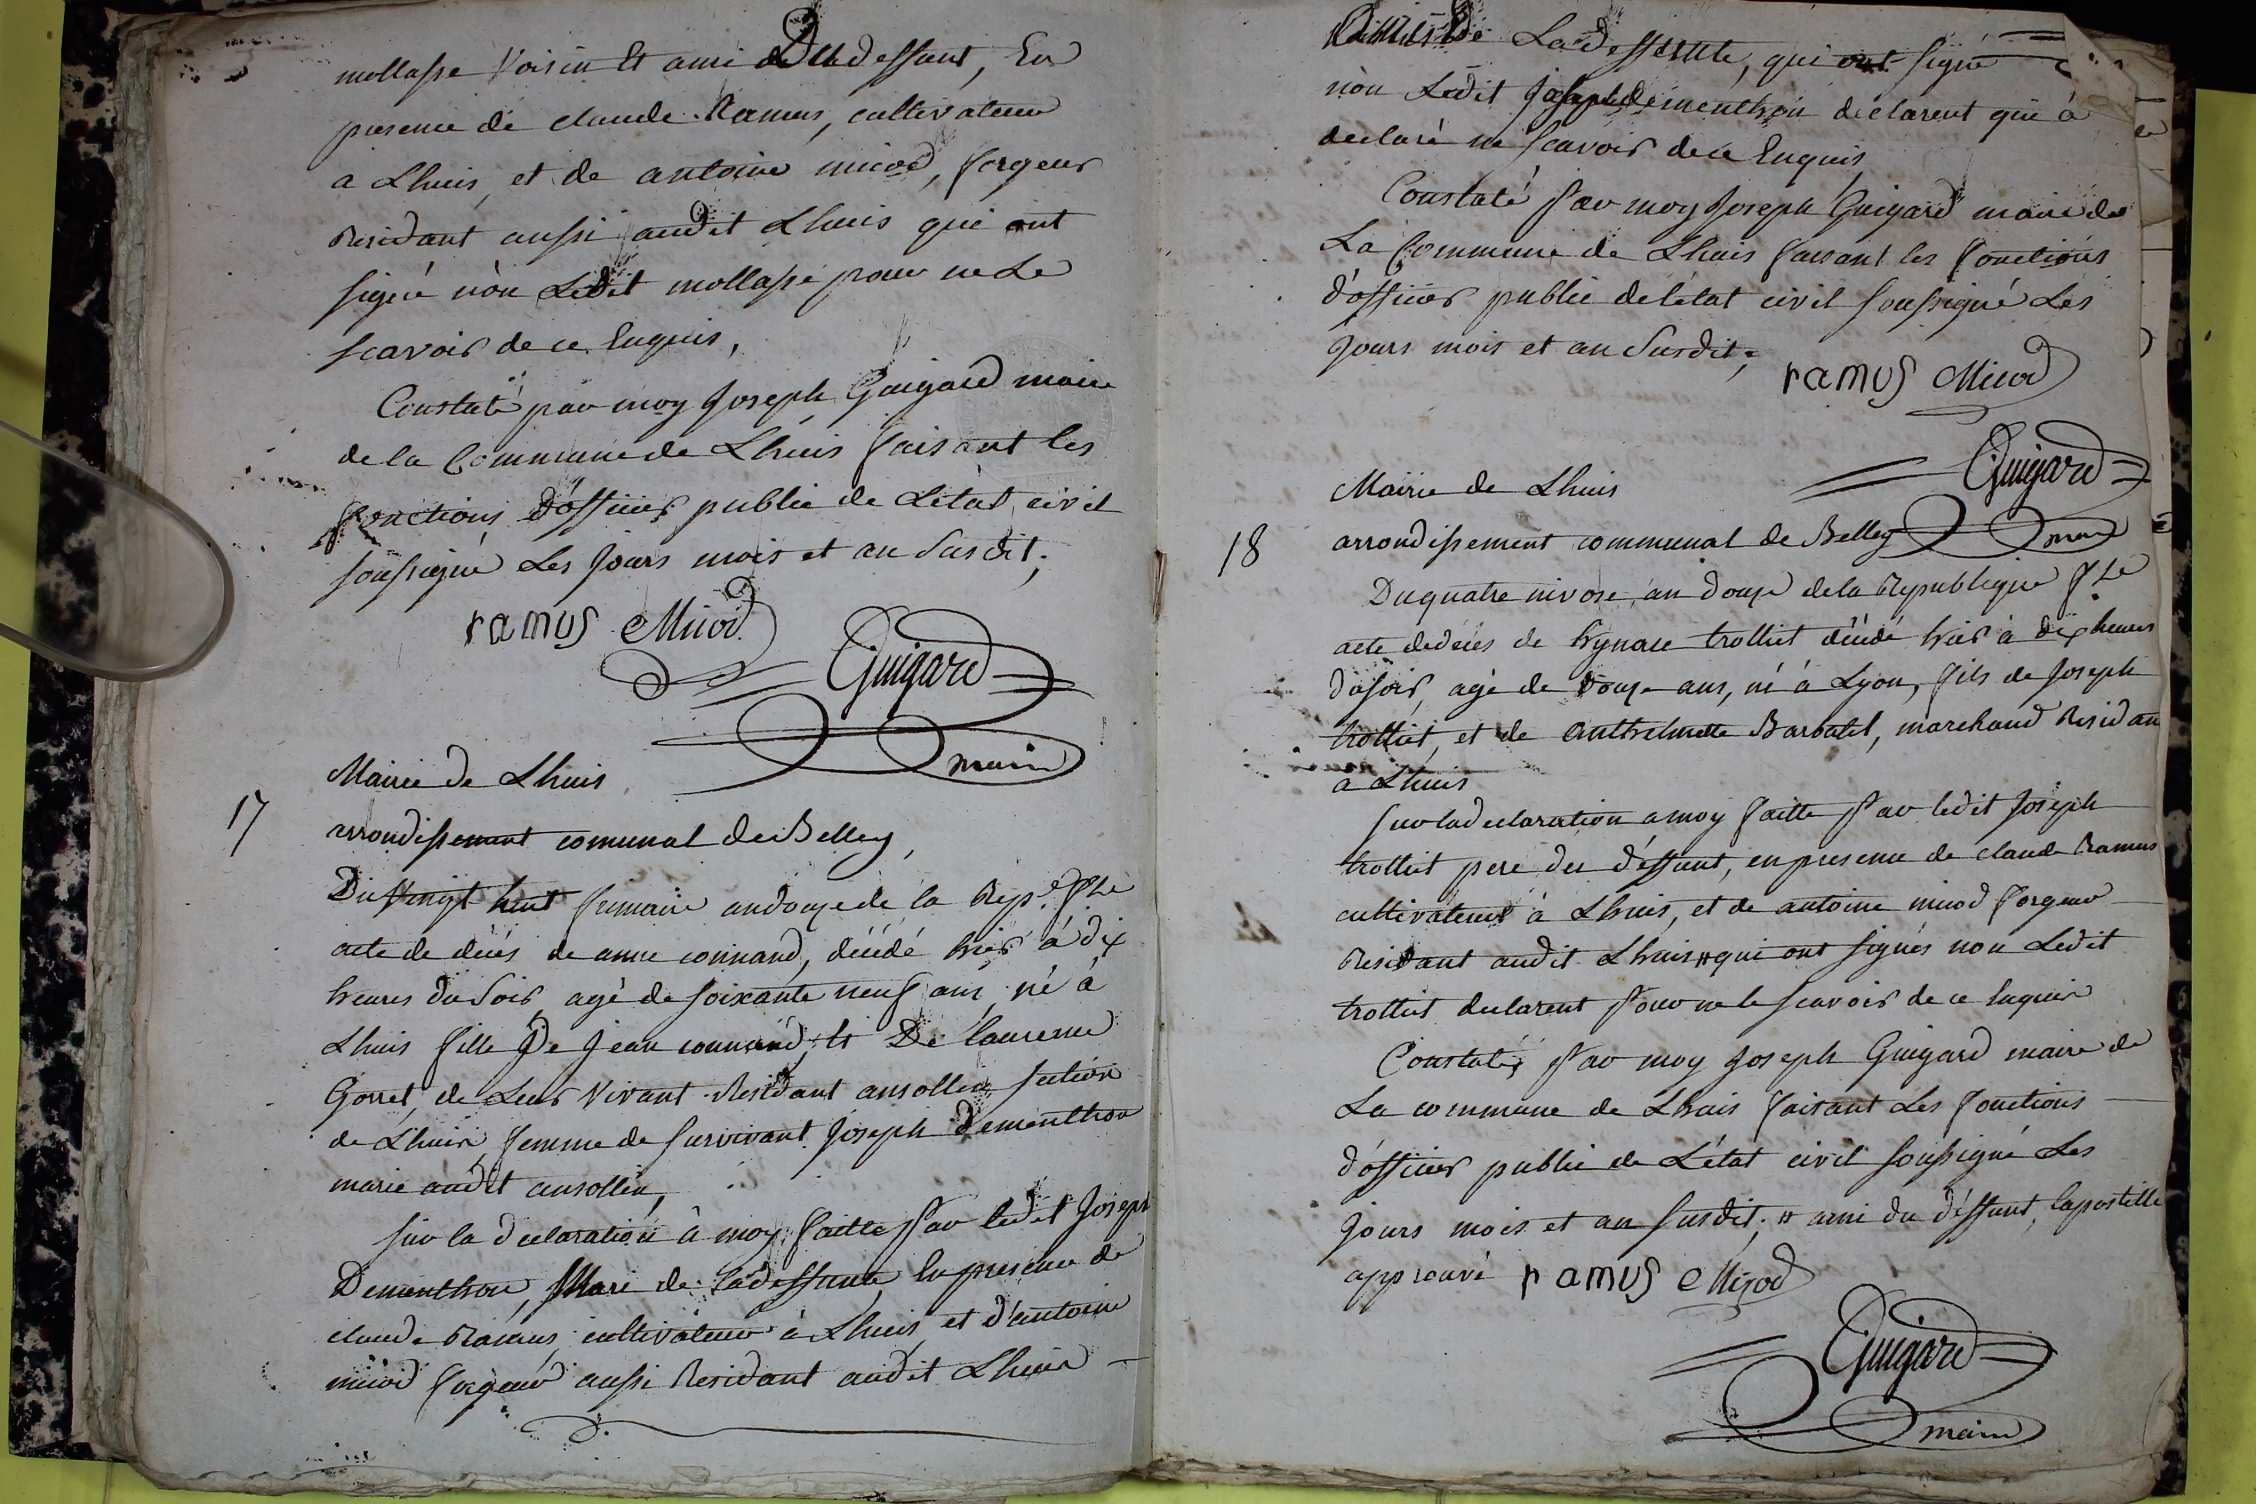 mollasse Voisin Et ami du deffunt, En
presence de claude Ramus, cultivateur
a Lhuis, et de antoine micod, forgeur
Residant aussi audit Lhuis qui ont
signé nòn Ledit mollasse pour ne Le
scavoir de ce Enquis,
Constaté par moy Joseph Guigard maire
de la Commune de Lhuis faisant les
fonctions d'officier public de L'état civil
soussigné Les jours mois et an susdit;
ramus Micod
Guigard
maire
Mairie de Lhuis
17
arrondissement comunal de Belley,
Du vingt huit frimaire an douze de la Rep.e f.se
acte de décés de anne connand, décédé hier à dix
heures du soir, agé de soixante neuf ans, né à
Lhuis fille De Jean connand, et De laurence
Gorret, de Leur Vivant Residant ansollin section
de Lhuis, femme de survivant Joseph dementhon
marié audit ansollin,
sur la declaration à moy faitte par ledit Joseph
Dementhon, Mari de la deffunte, En presence de
claude Ramus cultivateur à Lhuis, et d'antoine
micod forgeur aussi Residant audit Lhuis
de La deffunte, qui ont signé
nòn Ledit Joseph dementhon déclarent qui à
declaré ne scavoir de ce Enquis
Constaté par moy Joseph Guigard maire de
La Commune de Lhuis faisant les fonctions
d'officier public de l'état civil soussigné Les
jours mois et an susdit;
ramus Micod
Guigard
Mairie de Lhuis
18
arrondissement communal de Belley
maire
Du quatre nivose, an douze de la Republique f.se
acte de décés de hynace trolliet décédé hier à dix heures
du soir, agé de douze ans, né à Lyon, fils de Joseph
trolliet, et de anthelmette Barbatel, marchand Residan
a Lhuis
sur la declaration a moy faitte par ledit Joseph
trolliet pere du deffunt, en presence de claude Ramus
cultivateur à Lhuis, et de antoine micod forgeur
Residant audit Lhuis # qui ont signés non Ledit
trolliet declarent pour ne le scavoir de ce Enquis
Constaté par moy Joseph Guigard maire de
La commune de Lhuis faisant Les fonctions
d'officier public de L'état civil soussigné Les
jours mois et an susdit; # ami du déffunt, lapostille
approuvé ramus Micod
Guigard
maire